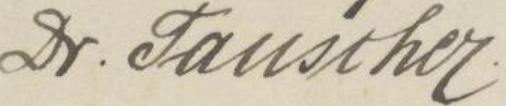 Dr. Tauscher